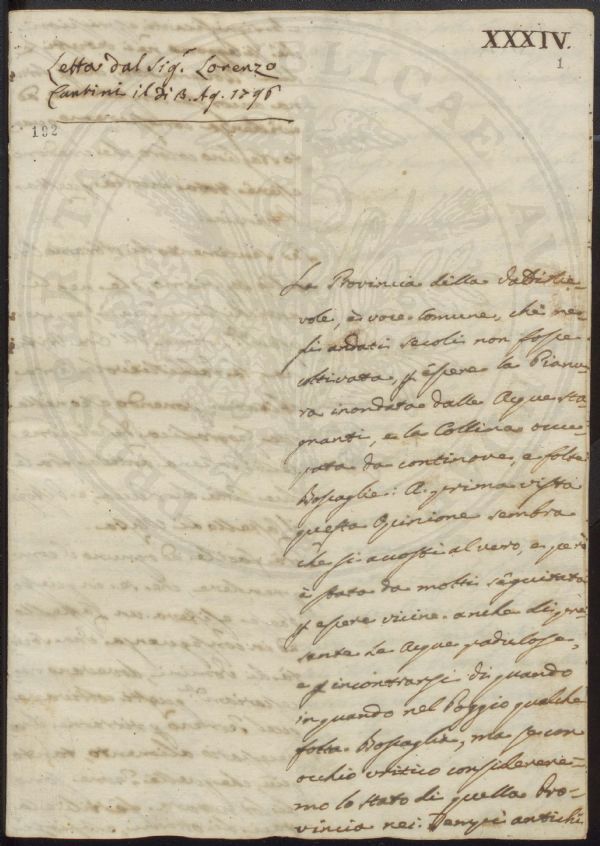 XXXIV.
1
Letta dal Sig.r Lorenzo
Cantini il dì 13. Ag. 1796
192
La Provincia della Valdinie-
vole, è voce comune, che ne-
gli andati secoli non fosse
coltivata, p essere la Pianu
ra inondata dalle Acque sta
gnanti, e le Colline occu-
pata da continove, e folte
Boscaglie: A prima vista
questa Opinione sembra
che si accosti al vero, e però
è stata da molti seguitata
p essere vicine anche di pre
sente le Acque padulose,
e p incontrarsi di quando
in quando nel Poggio qualche
folta Boscaglia, ma se con
occhio critico considerere-
mo lo stato di quella Pro-
vincia nei Tempi antichi